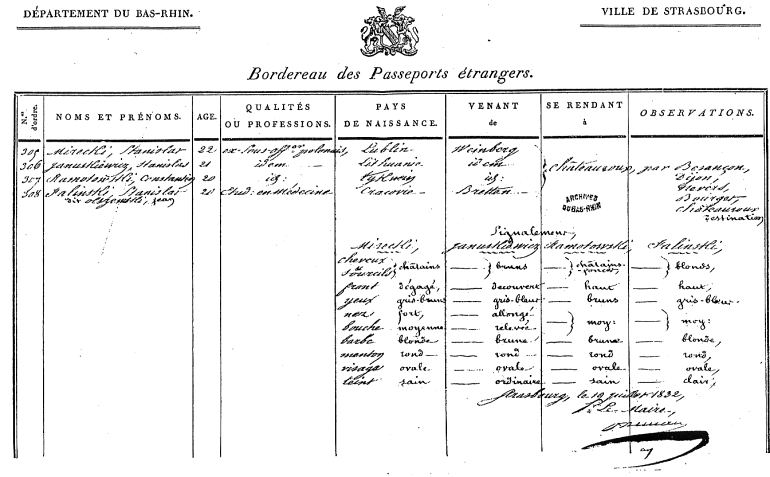 DÉPARTEMENT DU BAS-RHIN. VILLE DE STRASBOURG.
Bordereau des Passeports étrangers.
N.os d'ordre. NOMS ET PRÉNOMS. AGE. QUALITÉS OU PROFESSIONS. PAYS DE NAISSANCE. VENANT de SE RENDANT à OBSERVATIONS.
305 Mirecki, Stanislas 22 ex-sous-offer polonais, Lublin Weinberg
306 Januskiewicz, Stanislas 21 idem Lithuanie idem Châteauroux, par Besançon,
307 Ramotowski, Constantin 20 id: id: Dijon,
308 Salinski, Stanislas 21 Etud: en Médecine Cracovie Bretten Nevers,
dit Jean Bourges,
Châteauroux
Destination
ARCHIVES DU BAS-RHIN
Signalement,
Mirecki, Januskiewicz, Ramotowski, Salinski,
cheveux et sourcils châtains — bruns — châtains-foncés, — blonds,
front dégagé, — découvert — haut — haut,
yeux gris-bruns — gris-bleus — bruns — gris-bleus
nez fort, — allongé — moy: — moy:
bouche moyenne — relevée
barbe blonde — brune — brune — blonde,
menton rond — rond — rond — rond,
visage ovale — ovale — ovale — ovale,
teint sain — ordinaire — sain — clair,
Strasbourg, le 19 juillet 1832,
Le Maire,